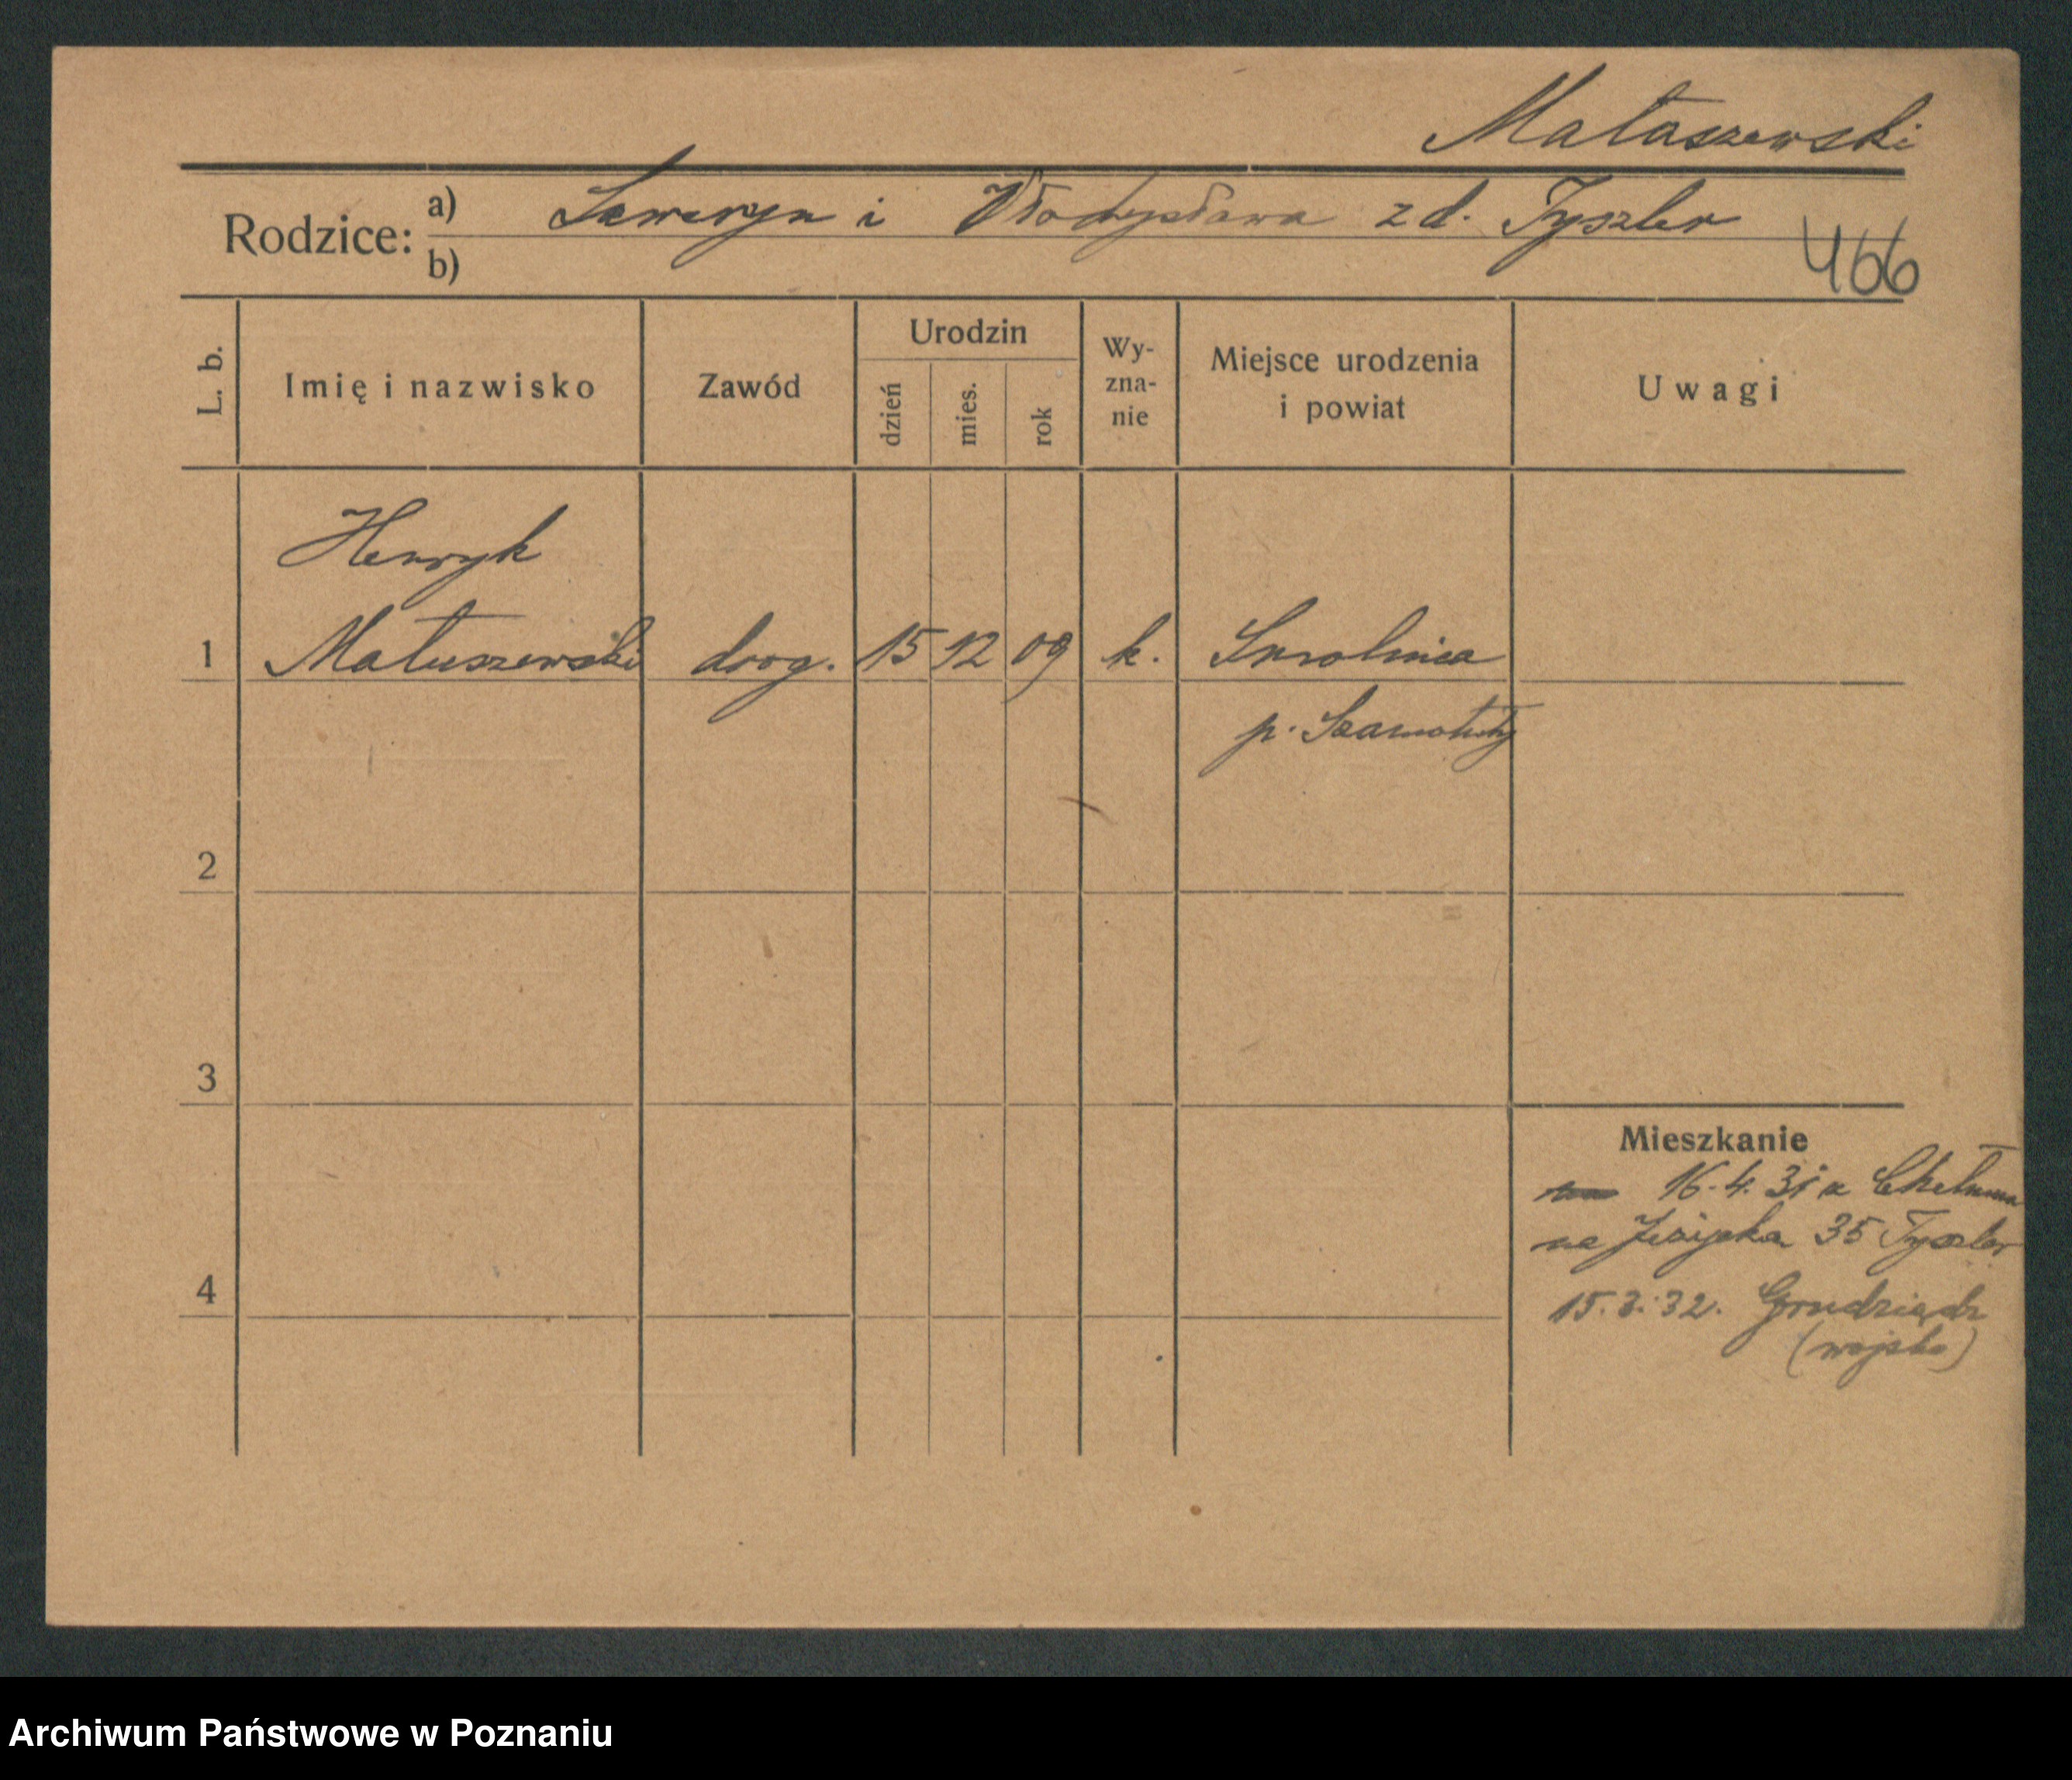 Matuszewski
Rodzice: a) Seweryn i Władysława z d. Tyszler
b)
466
L. b. Imię i nazwisko Zawód Urodzin dzień mies. rok Wy-zna-nie Miejsce urodzenia i powiat Uwagi
Henryk
1 Matuszewski drog. 15 12 09 k. Smolnica
p. Szamotuły
2
3
Mieszkanie
16.4.31 z Chełmna
na 35 Tyszler
4
15.3.32. Grudziądz
(wojsko)
Archiwum Państwowe w Poznaniu